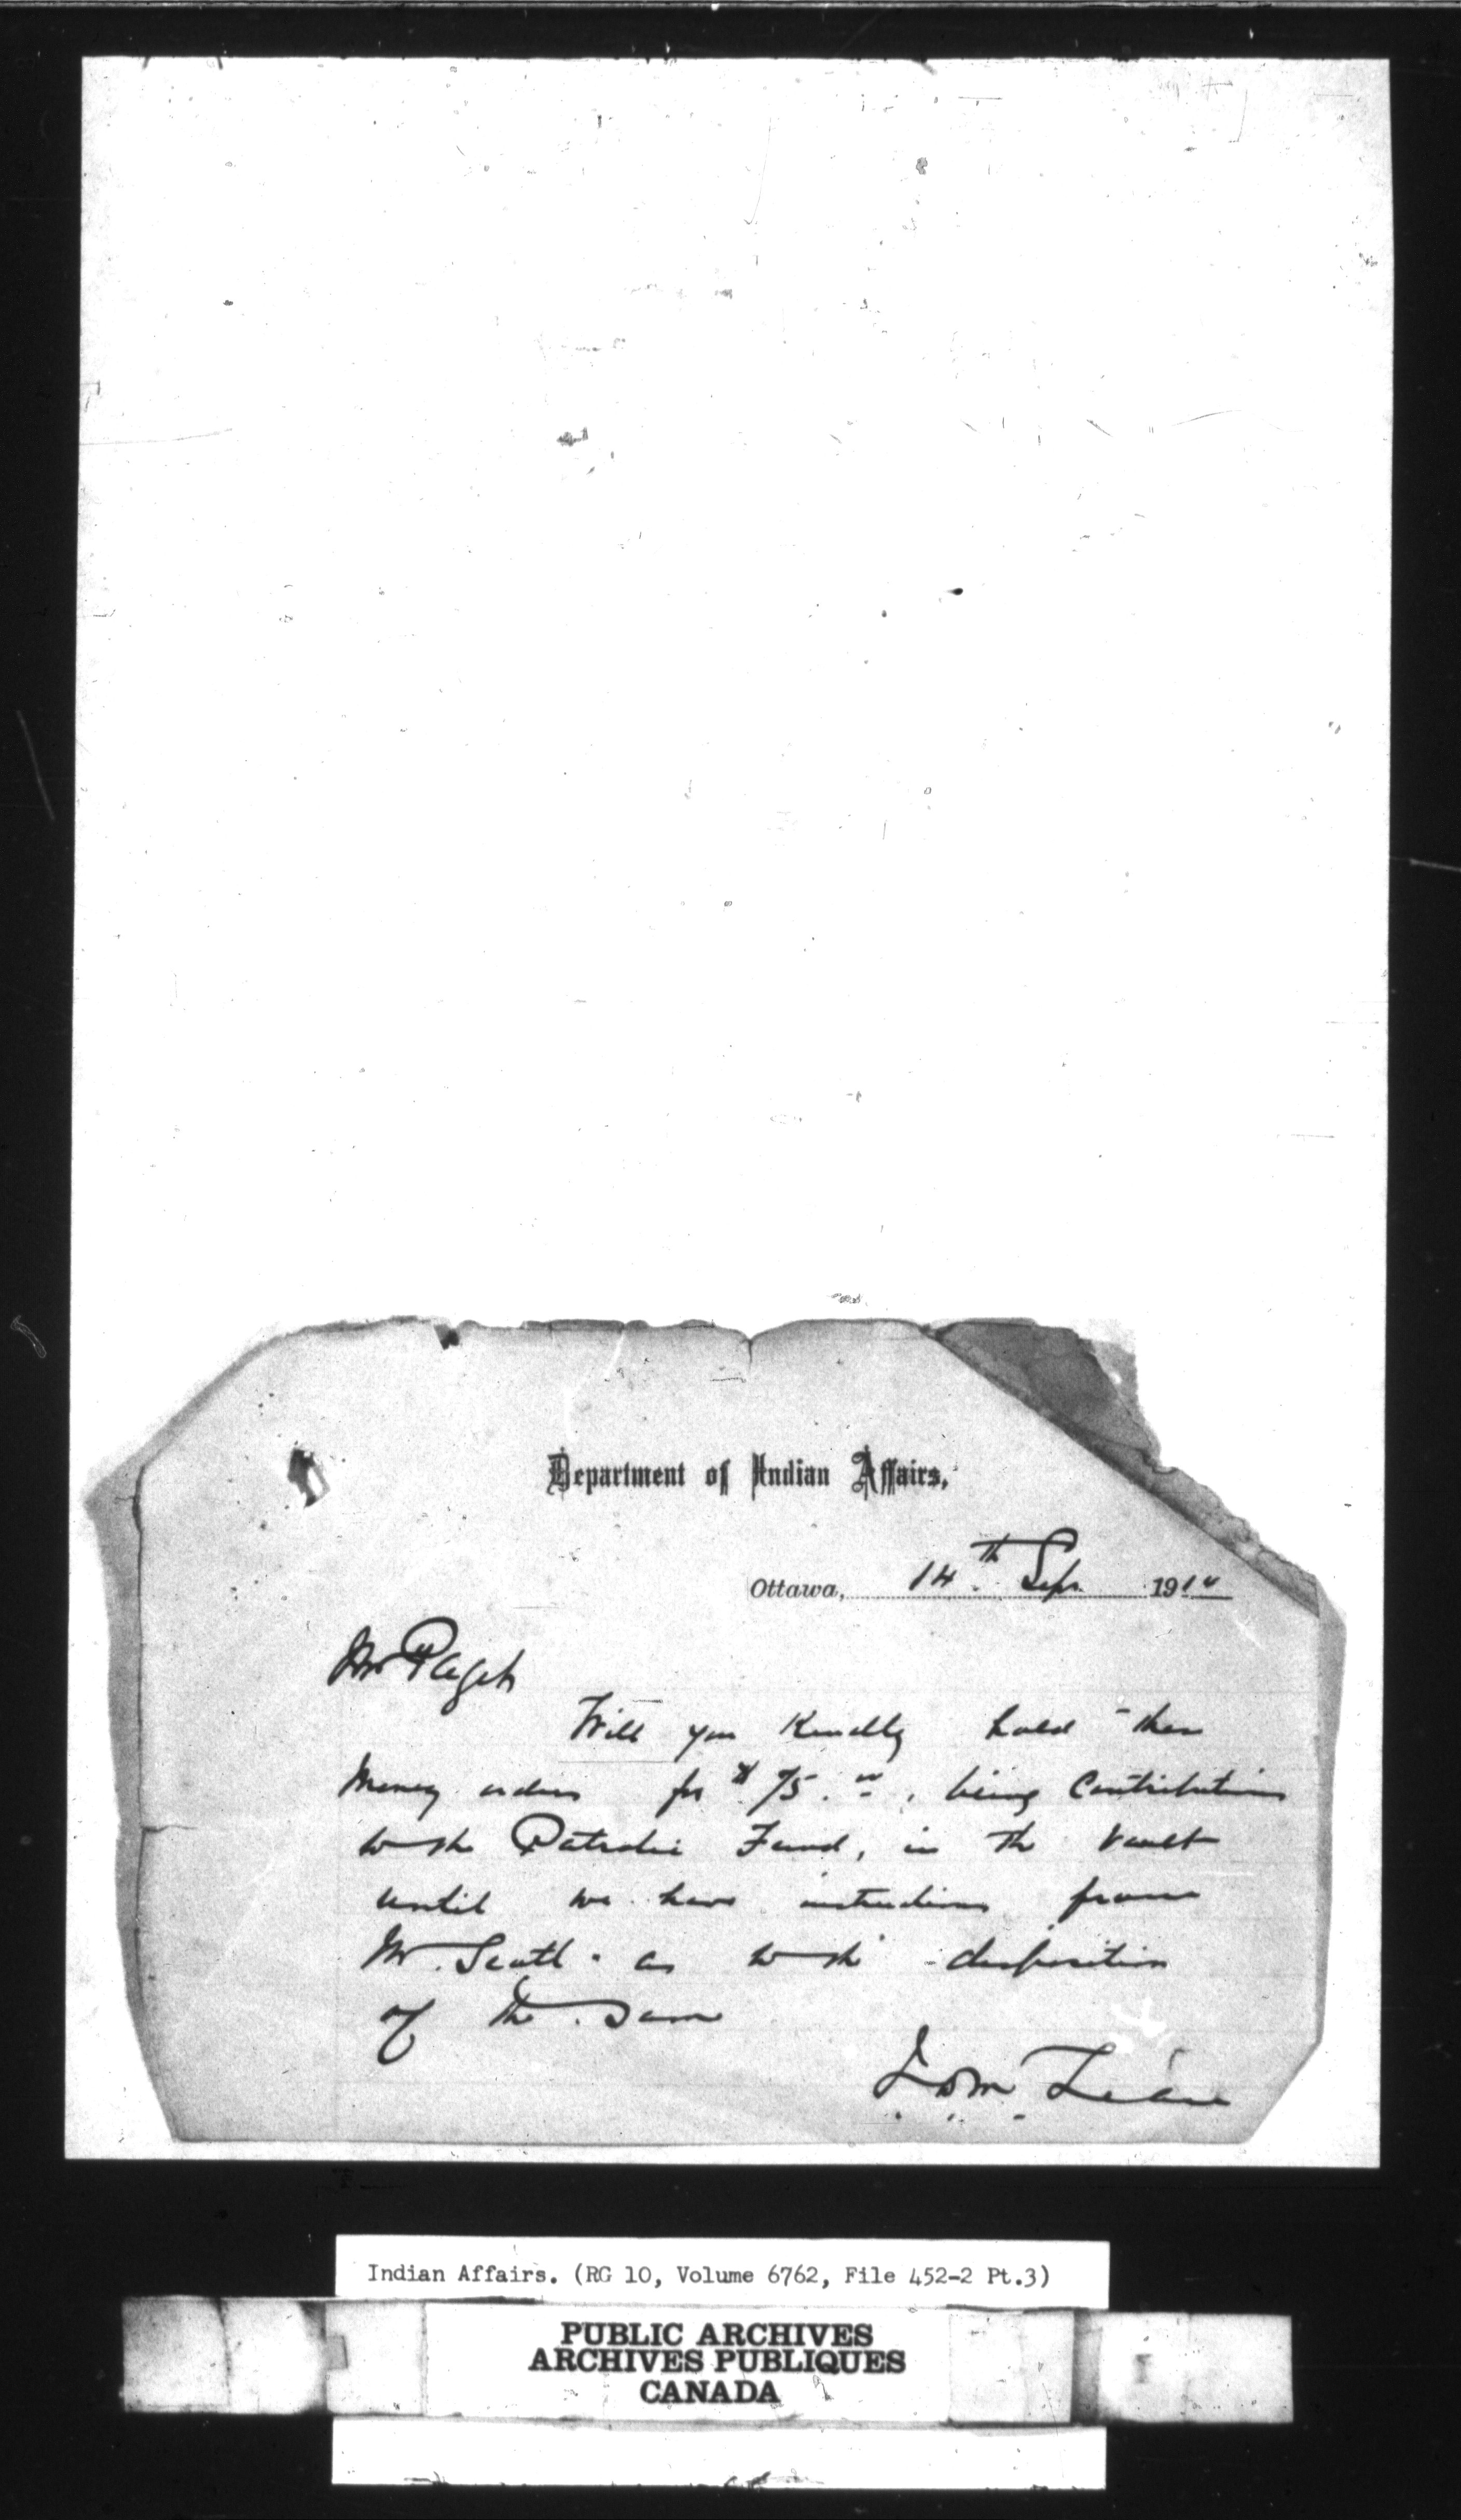 Department of Indian Affairs,
Ottawa, 14th Sep. 191
Mr Paget
Will you Kindly hold these
Money orders for $75.00, being Contributions
to the Patriotic Fund, in the Vault
until we have instructions from
Mr. Scott as to the disposition
of the same
Indian Affairs. (RG 10, Volume 6762, File 452-2 Pt.3)
PUBLIC ARCHIVES
ARCHIVES PUBLIQUES
CANADA